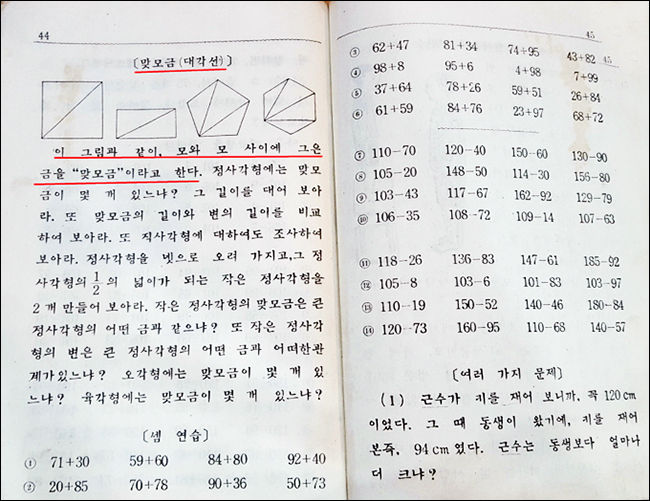 44
[맞모금(대각선)]
이 그림과 같이, 모와 모 사이에 그은
금을 "맞모금"이라고 한다. 정사각형에는 맞모
금이 몇 개 있느냐? 그 길이를 대어 보아
라. 또 맞모금의 길이와 변의 길이를 비교
하여 보아라. 또 직사각형에 대하여도 조사하여
보아라. 정사각형을 넷으로 오려 가지고,그 정
사각형의 1/2의 넓이가 되는 작은 정사각형을
2개 만들어 보아라. 작은 정사각형의 맞모금은 큰
정사각형의 어떤 금과 같으냐? 또 작은 정사각
형의 변은 큰 정사각형의 어떤 금과 어떠한관
계가있느냐? 오각형에는 맞모금이 몇 개 있
느냐? 육각형에는 맞모금이 몇 개 있느냐?
[셈 연습]
① 71+30 59+60 84+80 92+40
② 20+85 70+78 90+36 50+73
45
③ 62+47 81+34 74+95 43+82
④ 98+8 95+6 4+98 7+99
⑤ 37+64 78+26 59+51 26+84
⑥ 61+59 84+76 23+97 68+72
⑦ 110-70 120-40 150-60 130-90
⑧ 105-20 148-50 114-30 156-80
⑨ 103-43 117-67 162-92 129-79
⑩ 106-35 108-72 109-14 107-63
⑪ 118-26 136-83 147-61 185-92
⑫ 105-8 103-6 101-83 103-97
⑬ 110-19 150-52 140-46 180-84
⑭ 120-73 160-95 110-68 140-57
[여러 가지 문제]
(1) 근수가 키를 재어 보니까, 꼭 120cm
이었다. 그 때 동생이 왔기에, 키를 재어
본즉, 94cm였다. 근수는 동생보다 얼마나
더 크냐?